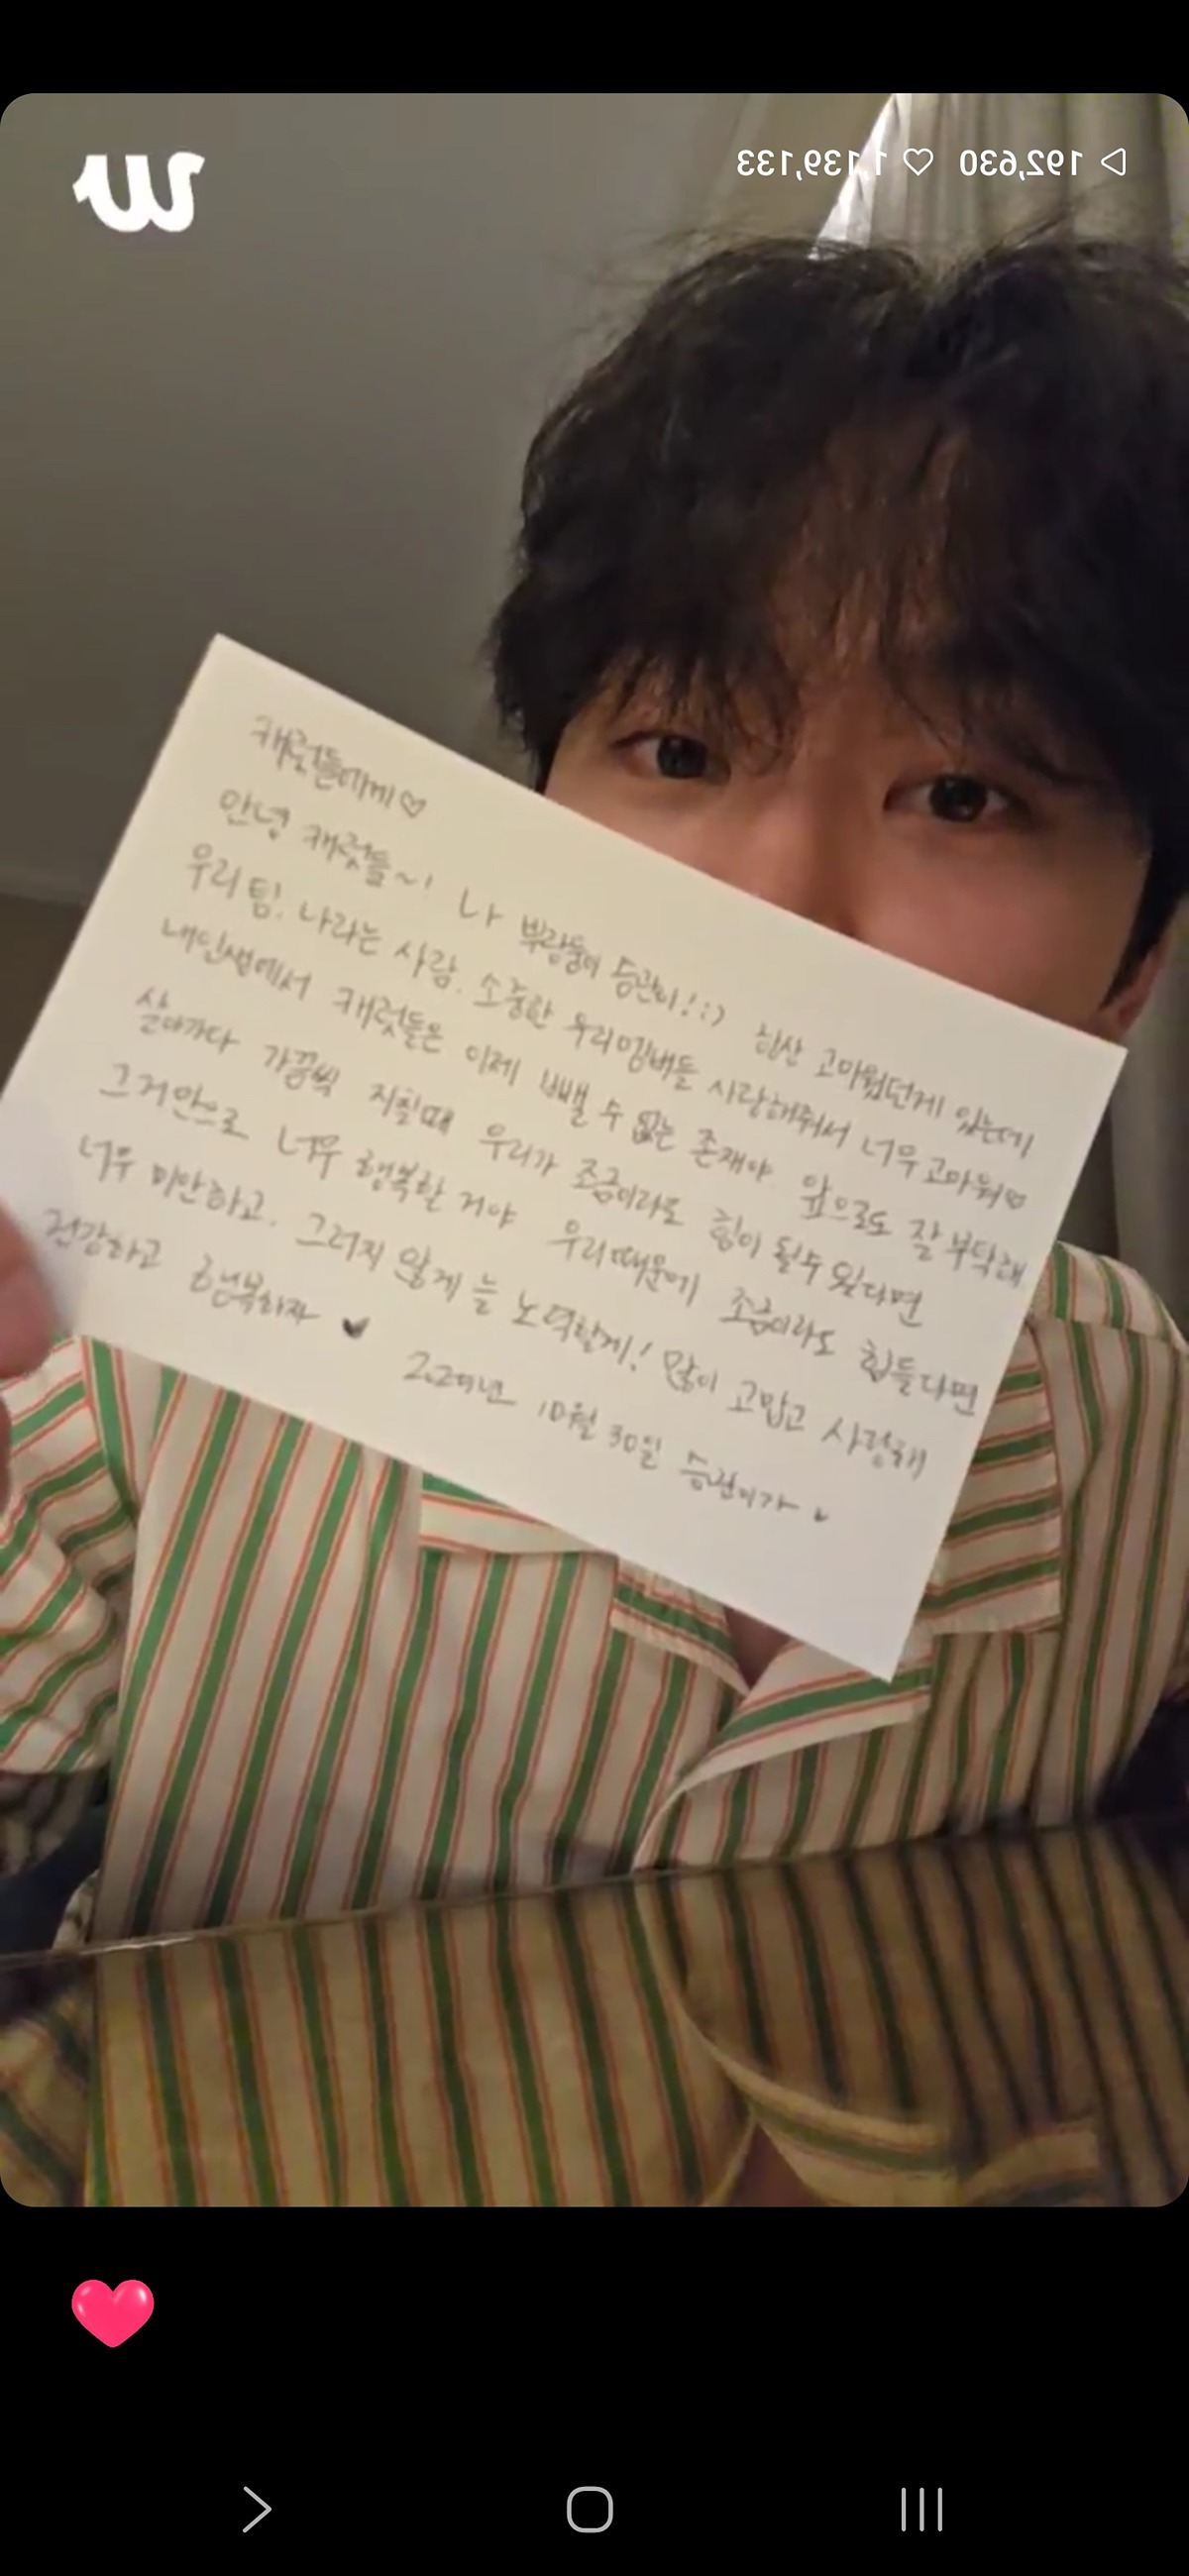 192,630 1,139,133
캐럿들에게♡
안녕 캐럿들~! 나 뿌랑둥이 승관이!:) 항상 고마웠던게 있는데
우리 팀, 나라는 사람, 소중한 우리 멤버들 사랑해줘서 너무 고마워♡
내 인생에서 캐럿들은 이제 뺄 수 없는 존재야 앞으로도 잘 부탁해
살아가다 가끔씩 지칠때 우리가 조금이라도 힘이 될수 있다면
그거만으로 너무 행복할 거야 우리 때문에 조금이라도 힘들다면
너무 미안하고, 그러지 않게 늘 노력할게! 많이 고맙고 사랑해
건강하고 행복하자 ♥
10월 30일 승관이가